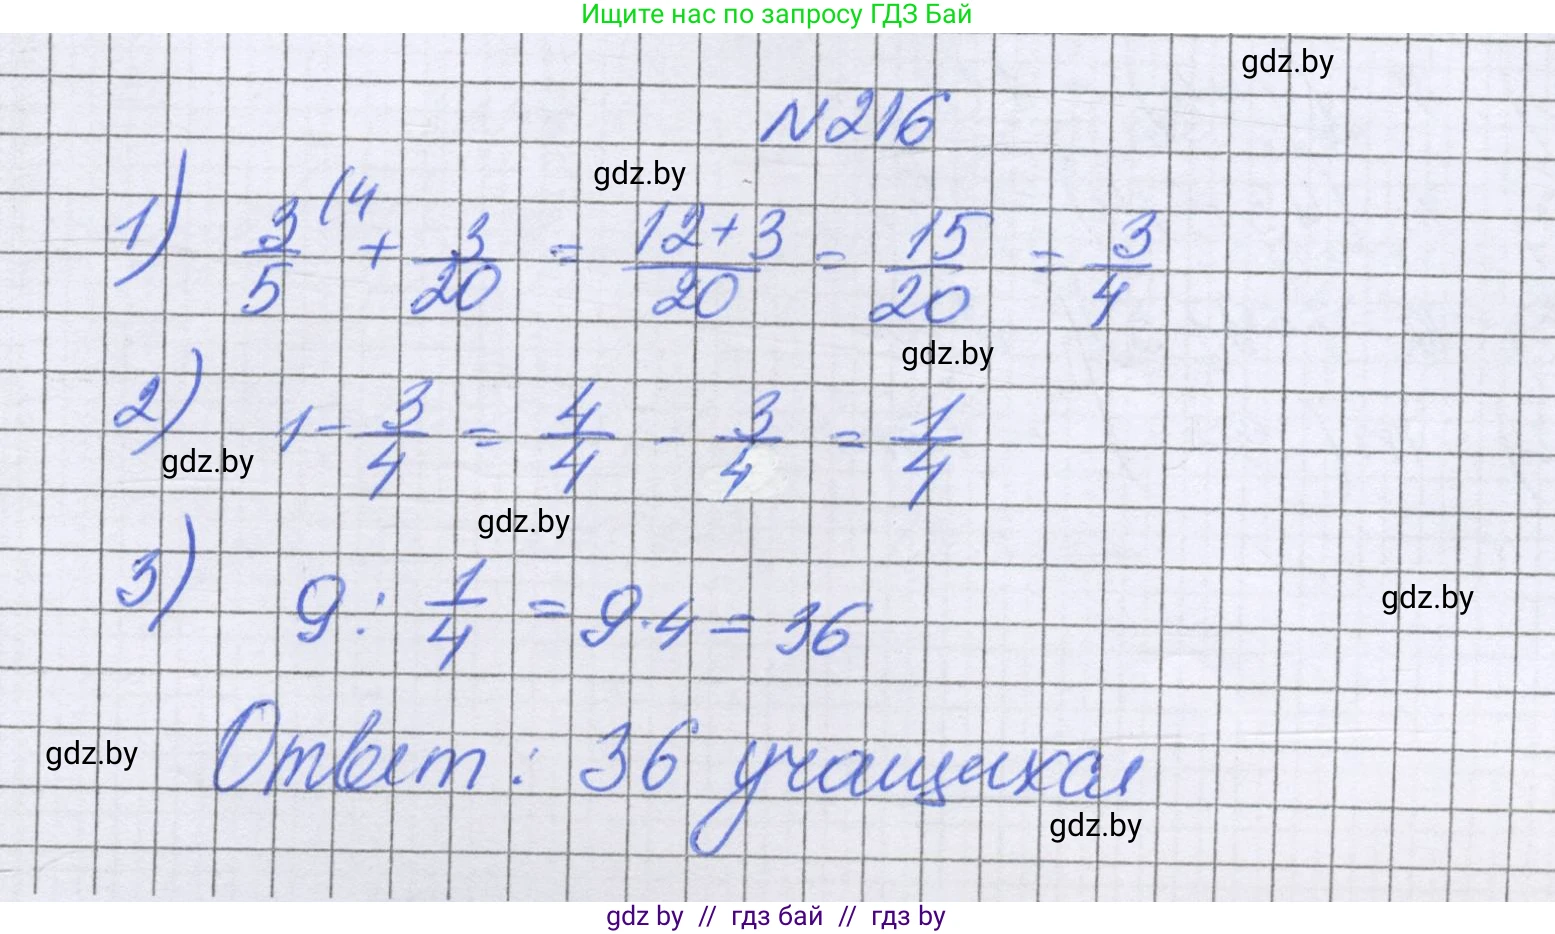 Ищите нас по запросу ГДЗ Бай
gdz.by
N216
gdz.by
1) 3/5 (4 + 3/20 = 12+3/20 = 15/20 = 3/4
gdz.by
2) 1 - 3/4 = 4/4 - 3/4 = 1/4
gdz.by
gdz.by
3) 9 : 1/4 = 9·4 = 36
gdz.by
Ответ: 36 учащихся
gdz.by
gdz.by
gdz by // гдз бай // гдз by